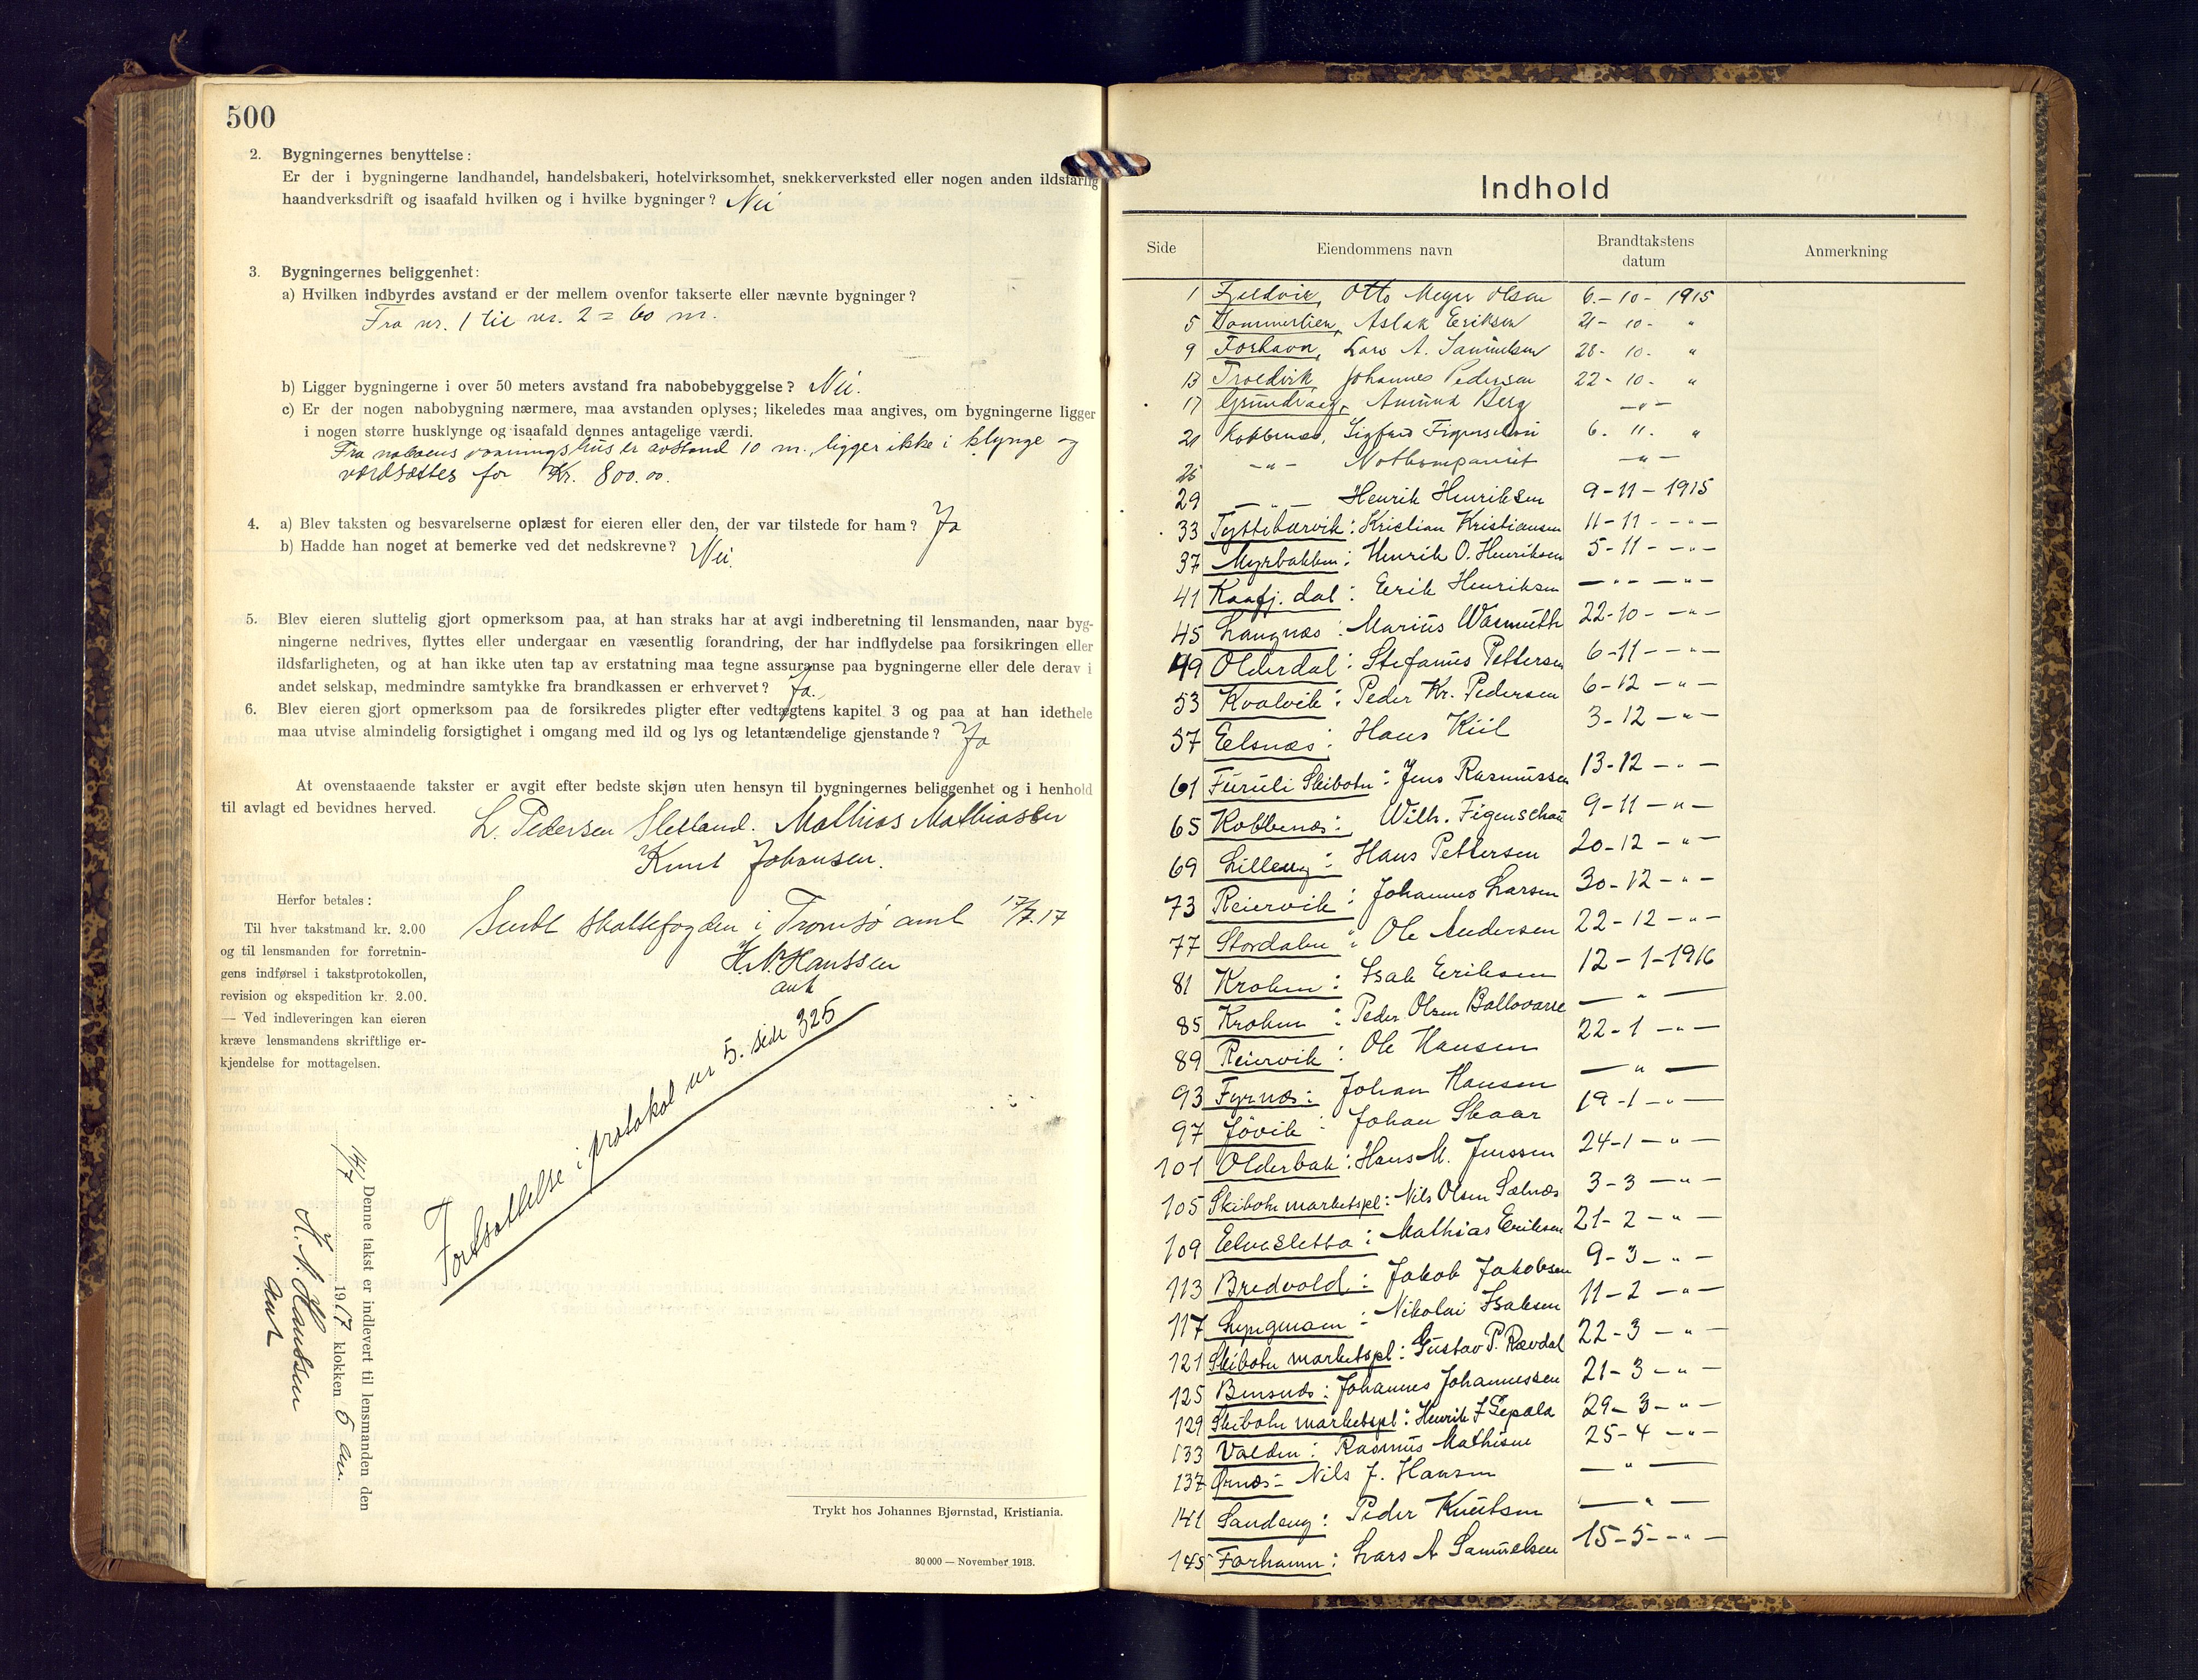 500
2. Bygningernes benyttelse:
Er der i bygningerne landhandel, handelsbakeri, hotelvirksomhet, snekkerverksted eller nogen anden ildsfarlig
haandverksdrift og isaafald hvilken og i hvilke bygninger? Nei
3. Bygningernes beliggenhet:
a) Hvilken indbyrdes avstand er der mellem ovenfor takserte eller nævnte bygninger?
Fra nr. 1 til nr. 2 = 60 m.
b) Ligger bygningerne i over 50 meters avstand fra nabobebyggelse? Nei.
c) Er der nogen nabobygning nærmere, maa avstanden oplyses; likeledes maa angives, om bygningerne ligger
i nogen større husklynge og isaafald dennes antagelige værdi.
Fra naboens vaaningshus er avstand 10 m. ligger ikke i klynge og
værdsættes for Kr. 800.00.
4. a) Blev taksten og besvarelserne oplæst for eieren eller den, der var tilstede for ham? Ja
b) Hadde han noget at bemerke ved det nedskrevne? Nei.
5. Blev eieren sluttelig gjort opmerksom paa, at han straks har at avgi indberetning til lensmanden, naar byg-
ningerne nedrives, flyttes eller undergaar en væsentlig forandring, der har indflydelse paa forsikringen eller
ildsfarligheten, og at han ikke uten tap av erstatning maa tegne assuranse paa bygningerne eller dele derav i
andet selskap, medmindre samtykke fra brandkassen er erhvervet? Ja.
6. Blev eieren gjort opmerksom paa de forsikredes pligter efter vedtægtens kapitel 3 og paa at han idethele
maa utvise almindelig forsigtighet i omgang med ild og lys og letantændelige gjenstande? Ja
At ovenstaaende takster er avgit efter bedste skjøn uten hensyn til bygningernes beliggenhet og i henhold
til avlagt ed bevidnes herved.
L. Pedersen Sletland. Mathias Mathiassen
Knut Johansen.
Herfor betales:
Til hver takstmand kr. 2.00
og til lensmanden for forretnin-
gens indførsel i takstprotokollen,
revision og ekspedition kr. 2.00.
— Ved indleveringen kan eieren
kræve lensmandens skriftlige er-
kjendelse for mottagelsen.
Sendt skattefogden i Tromsø amt 17/7.17
H. N. Hanssen
aut
Fortsættelse i protokol nr 5. side 325
Denne takst er indlevert til lensmanden den
14/7 1917 klokken 5 em.
H. N. Hanssen
aut
Trykt hos Johannes Bjørnstad, Kristiania.
30 000 — November 1913.
Indhold
Side Eiendommens navn Brandtakstens datum Anmerkning
1 Fjeldvik, Otto Meyer Olsen 6.-10-1915
5 Aslak Eriksen 21-10- "
9 Forhavn, Lars A. Samuelsen 28-10. "
13 Troldvik, Johannes Pedersen 22-10- "
17 Grundvaag, Amund Berg -"-
21 Kobbenæs, Sigfred Figenschau 6. 11. "
25 -"- Notkompaniet -"-
29 -"- Henrik Henriksen 9-11-1915
33 Tyttebærvik: Kristian Kristiansen 11-11- -"-
37 Myrbakken: Henrik O. Henriksen 5-11- -"-
41 Kaafj. dal: Eerik Henriksen -"- -"-
45 Langnæs: Marius Wasmuth 22-10- -"-
49 Olderdal: Stefanus Pettersen 6-11- -"-
53 Kvalvik: Peder Kr. Pedersen 6-12 -"-
57 Eelsnæs: Hans Kiil 3-12 -"-
61 Furuli Skibotn: Jens Rasmussen 13-12 -"-
65 Kobbenæs: Wilh. Figenschau 9-11 -"-
69 Lilleeng: Hans Pettersen 20-12 -"-
73 Reiervik: Johannes Larsen 30-12 -"-
77 Stordalen: Ole Andersen 22-12 -"-
81 Kroken: Isak Eriksen 12-1-1916
85 Kroken: Peder Olsen Ballovarre -"-
89 Reiervik: Ole Hansen 22-1 -"-
93 Fyrnæs: Johan Hansen -"-
97 Jøvik: Johan Skaar 19-1 -"-
101 Olderbak: Hans M. Jenssen 24-1 -"-
105 Skibotn markedspl: Nils Olsen Salnæs 3-3 -"-
109 Elvesletta: Mathias Eriksen 21-2 -"-
113 Bredvold: Jakob Jakobsen 9-3 -"-
117 Lyngmoen: Nikolai Isaksen 11-2 -"-
121 Skibotn markedspl: Gustav P. Rævdal 22-3 -"-
125 Bensnæs: Johannes Johannessen 21-3 -"-
129 Skibotn markedspl: Henrik J Seppala 29-3 -"-
133 Valden: Rasmus Mathisen 25-4 -"-
137 Ørnæs- Nils J. Hansen -"-
141 Sandeng: Peder Knutsen -"-
145 Forhavn: Lars A Samuelsen 15-5- -"-